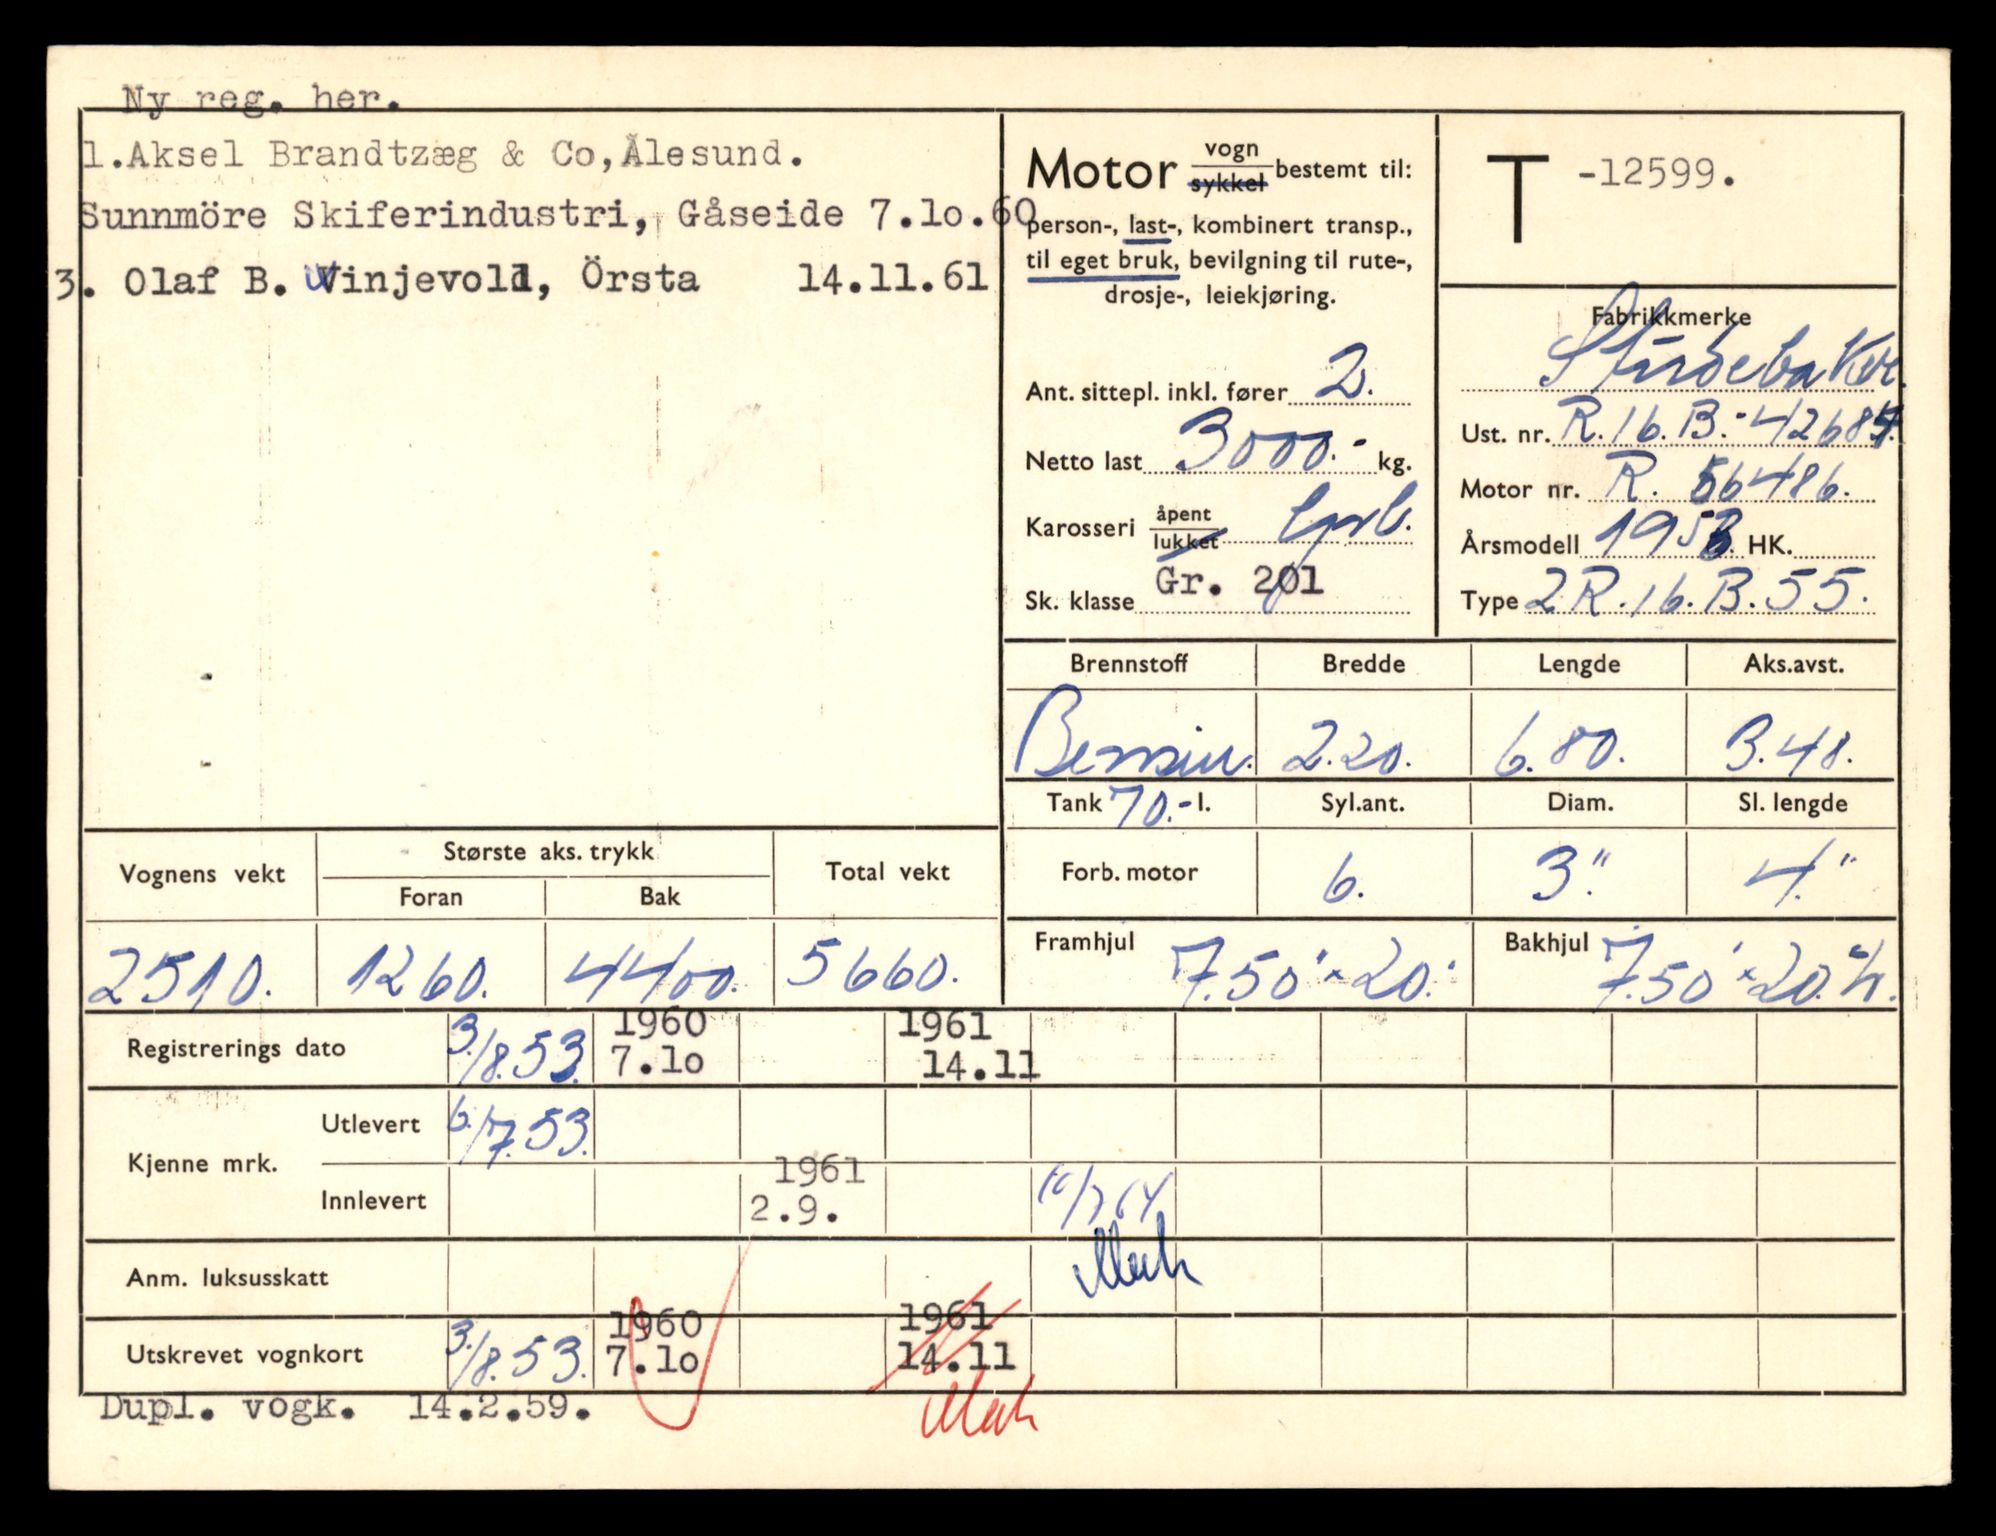 Ny reg. her.
1.Aksel Brandtzæg & Co,Ålesund.
Sunnmöre Skiferindustri, Gåseide 7.lo.60
3. Olaf B. Vinjevold, Örsta 14.11.61
Motor vogn/sykkel bestemt til:
person-, last-, kombinert transp.,
til eget bruk, bevilgning til rute-,
drosje-, leiekjøring.
Ant. sittepl. inkl. fører 2.
Netto last 3000.- kg.
Karosseri åpent/lukket
Sk. klasse Gr. 201
T -12599.
Fabrikkmerke
Studebaker.
Ust. nr. R.16.B.-42684.
Motor nr. R. 56486.
Årsmodell 1953. HK.
Type 2R.16.B.55.
Brennstoff Bredde Lengde Aks.avst.
Bensin. 2.20. 6.80. 3.48.
Tank 70.- l. Syl.ant. Diam. Sl. lengde
Forb. motor 6. 3." 4."
Framhjul 7.50"×20." Bakhjul 7.50"×20."
Vognens vekt Største aks. trykk Total vekt
Foran Bak
2510. 1260. 4400. 5660.
Registrerings dato 3./8.53. 1960 7.lo 1961 14.11
Kjenne mrk. Utlevert 6./7.53.
Innlevert 1961 2.9. 10/7 64
Anm. luksusskatt
Utskrevet vognkort 3./8.53. 1960 7.lo 1961 14.11
Dupl. vogk. 14.2.59.